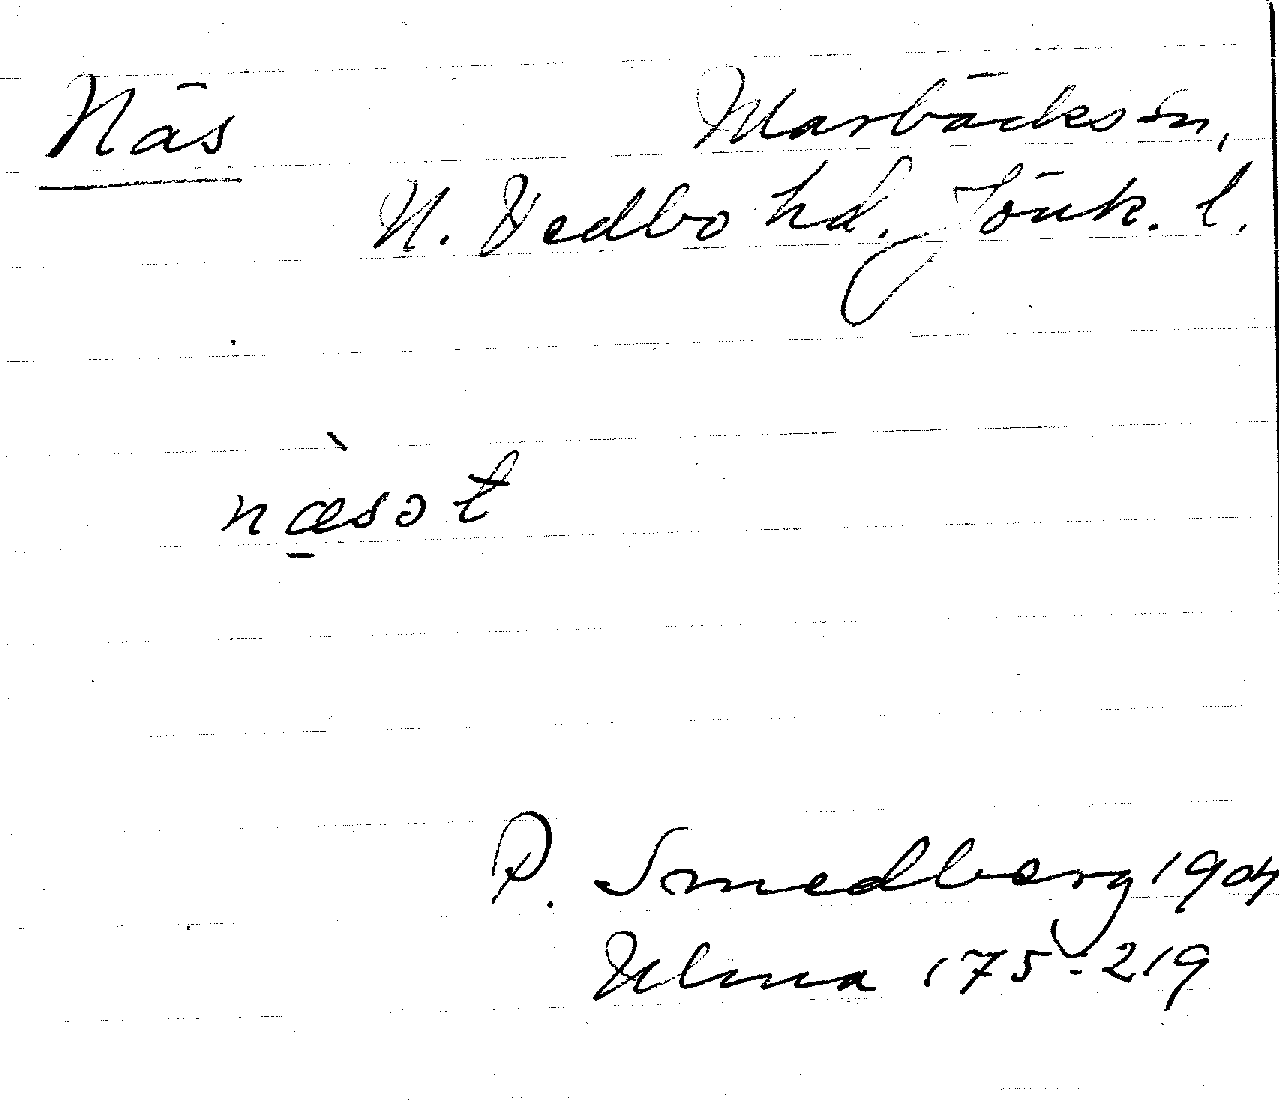 Näs Marbäcks sn,
N. Vedbo hd. Jönk. l.
næ̀sət
P. Smedberg 1904
Ulma 175:219